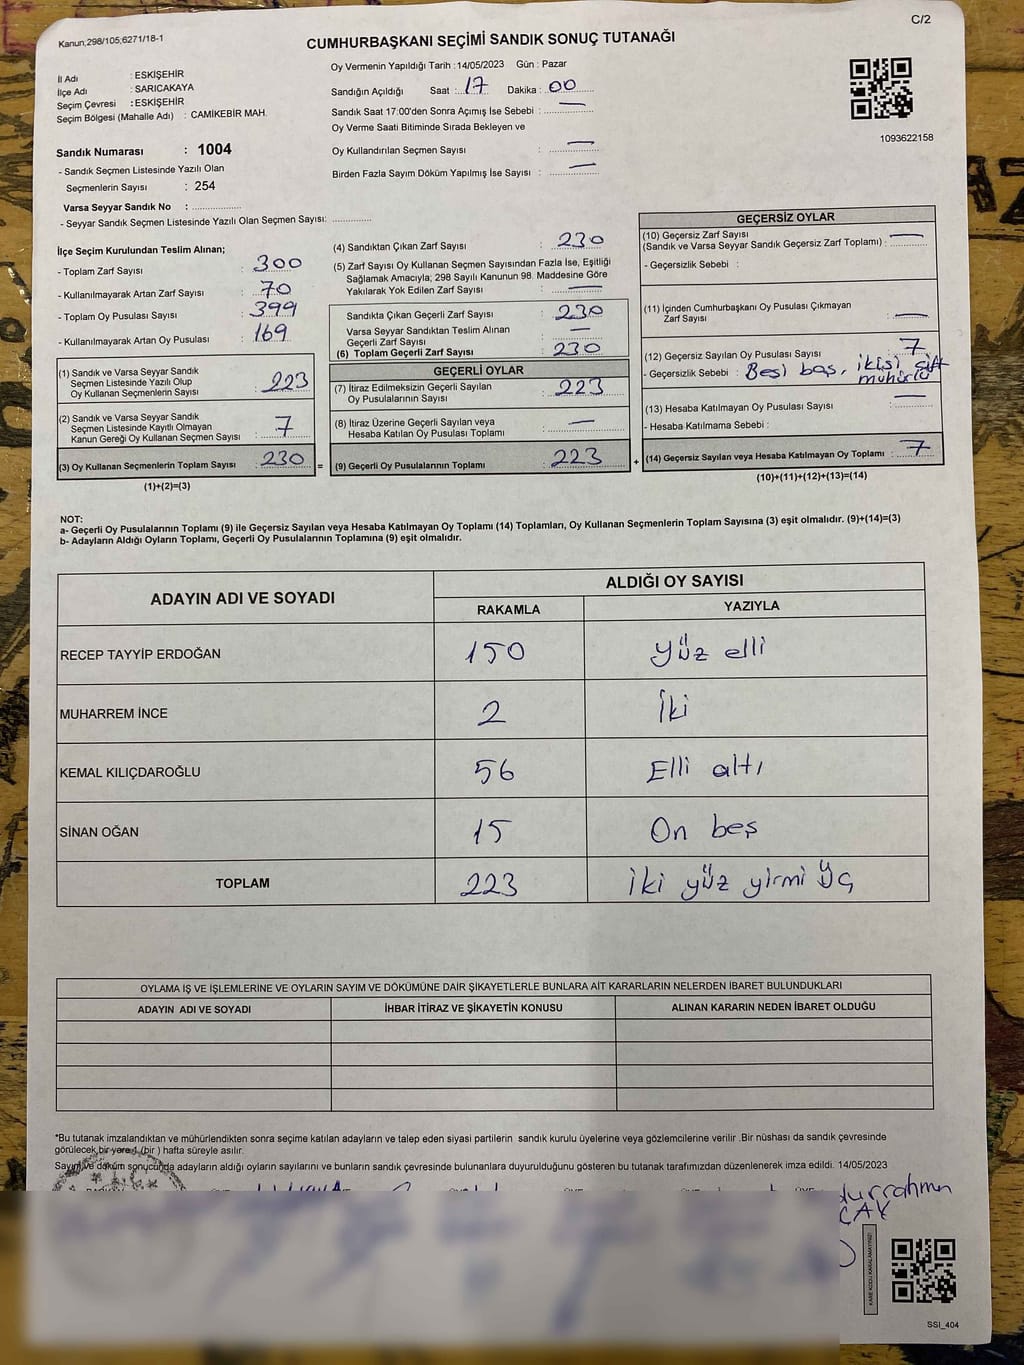 Kanun,298/105,6271/18-1
C/2
CUMHURBAŞKANI SEÇİMİ SANDIK SONUÇ TUTANAĞI
İl Adı : ESKİŞEHİR
İlçe Adı : SARICAKAYA
Seçim Çevresi : ESKİŞEHİR
Seçim Bölgesi (Mahalle Adı) : CAMİKEBİR MAH.
Sandık Numarası : 1004
- Sandık Seçmen Listesinde Yazılı Olan
Seçmenlerin Sayısı : 254
Varsa Seyyar Sandık No : ....................
- Seyyar Sandık Seçmen Listesinde Yazılı Olan Seçmen Sayısı: ...............
Oy Vermenin Yapıldığı Tarih :14/05/2023 Gün : Pazar
Sandığın Açıldığı Saat : 17 Dakika : 00
Sandık Saat 17:00'den Sonra Açımış İse Sebebi : —
Oy Verme Saati Bitiminde Sırada Bekleyen ve
Oy Kullandırılan Seçmen Sayısı : —
Birden Fazla Sayım Döküm Yapılmış İse Sayısı : —
1093622158
İlçe Seçim Kurulundan Teslim Alınan;
- Toplam Zarf Sayısı : 300
- Kullanılmayarak Artan Zarf Sayısı : 70
- Toplam Oy Pusulası Sayısı : 399
- Kullanılmayarak Artan Oy Pusulası : 169
(1) Sandık ve Varsa Seyyar Sandık
Seçmen Listesinde Yazılı Olup
Oy Kullanan Seçmenlerin Sayısı : 223
(2) Sandık ve Varsa Seyyar Sandık
Seçmen Listesinde Kayıtlı Olmayan
Kanun Gereği Oy Kullanan Seçmen Sayısı : 7
(3) Oy Kullanan Seçmenlerin Toplam Sayısı : 230
(1)+(2)=(3)
(4) Sandıktan Çıkan Zarf Sayısı : 230
(5) Zarf Sayısı Oy Kullanan Seçmen Sayısından Fazla İse, Eşitliği
Sağlamak Amacıyla; 298 Sayılı Kanunun 98. Maddesine Göre
Yakılarak Yok Edilen Zarf Sayısı : —
Sandıkta Çıkan Geçerli Zarf Sayısı : 230
Varsa Seyyar Sandıktan Teslim Alınan
Geçerli Zarf Sayısı : —
(6) Toplam Geçerli Zarf Sayısı : 230
GEÇERLİ OYLAR
(7) İtiraz Edilmeksizin Geçerli Sayılan
Oy Pusulalarının Sayısı : 223
(8) İtiraz Üzerine Geçerli Sayılan veya
Hesaba Katılan Oy Pusulası Toplamı : —
= (9) Geçerli Oy Pusulalarının Toplamı : 223
GEÇERSİZ OYLAR
(10) Geçersiz Zarf Sayısı
(Sandık ve Varsa Seyyar Sandık Geçersiz Zarf Toplamı) : —
- Geçersizlik Sebebi :
(11) İçinden Cumhurbaşkanı Oy Pusulası Çıkmayan
Zarf Sayısı : —
(12) Geçersiz Sayılan Oy Pusulası Sayısı : 7
- Geçersizlik Sebebi : Beşi boş, ikisi çift
mühürlü
(13) Hesaba Katılmayan Oy Pusulası Sayısı : —
- Hesaba Katılmama Sebebi :
+ (14) Geçersiz Sayılan veya Hesaba Katılmayan Oy Toplamı : 7
(10)+(11)+(12)+(13)=(14)
NOT:
a- Geçerli Oy Pusulalarının Toplamı (9) ile Geçersiz Sayılan veya Hesaba Katılmayan Oy Toplamı (14) Toplamları, Oy Kullanan Seçmenlerin Toplam Sayısına (3) eşit olmalıdır. (9)+(14)=(3)
b- Adayların Aldığı Oyların Toplamı, Geçerli Oy Pusulalarının Toplamına (9) eşit olmalıdır.
ADAYIN ADI VE SOYADI
ALDIĞI OY SAYISI
RAKAMLA YAZIYLA
RECEP TAYYİP ERDOĞAN 150 Yüz elli
MUHARREM İNCE 2 İki
KEMAL KILIÇDAROĞLU 56 Elli altı
SİNAN OĞAN 15 On beş
TOPLAM 223 iki yüz yirmi üç
OYLAMA İŞ VE İŞLEMLERİNE VE OYLARIN SAYIM VE DÖKÜMÜNE DAİR ŞİKAYETLERLE BUNLARA AİT KARARLARIN NELERDEN İBARET BULUNDUKLARI
ADAYIN ADI VE SOYADI İHBAR İTİRAZ VE ŞİKAYETİN KONUSU ALINAN KARARIN NEDEN İBARET OLDUĞU
*Bu tutanak imzalandıktan ve mühürlendikten sonra seçime katılan adayların ve talep eden siyasi partilerin sandık kurulu üyelerine veya gözlemcilerine verilir .Bir nüshası da sandık çevresinde
görülecek bir yere 1 (bir ) hafta süreyle asılır.
Sayım ve döküm sonucunda adayların aldığı oyların sayılarını ve bunların sandık çevresinde bulunanlara duyurulduğunu gösteren bu tutanak tarafımızdan düzenlenerek imza edildi. 14/05/2023
SSI_404